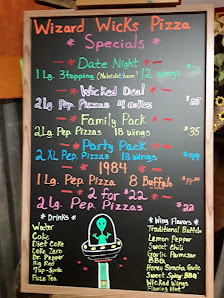 Wizard Wicks Pizza
Specials
Date Night
1 Lg. 3 topping 12 wings
Wicked Deal
2 Lg. Pep. Pizzas 4 cokes
Family Pack
2 Lg. Pep. Pizzas 18 wings $35
Party Pack
2 XL Pep. Pizzas 18 wings
1984
1 Lg. Pep. Pizza 8 Buffalo
2 for $22
2 Lg. Pep. Pizzas
Drinks
Water
Coke
Diet Coke
Coke Zero
Dr. Pepper
Big Red
Fuze Tea
Wing Flavors
Traditional Buffalo
Lemon Pepper
Sweet Chili
Garlic Parmesan
BBQ
Honey Sriracha Garlic
Sweet Spicy BBQ
Wicked Wings
Flaming Hot